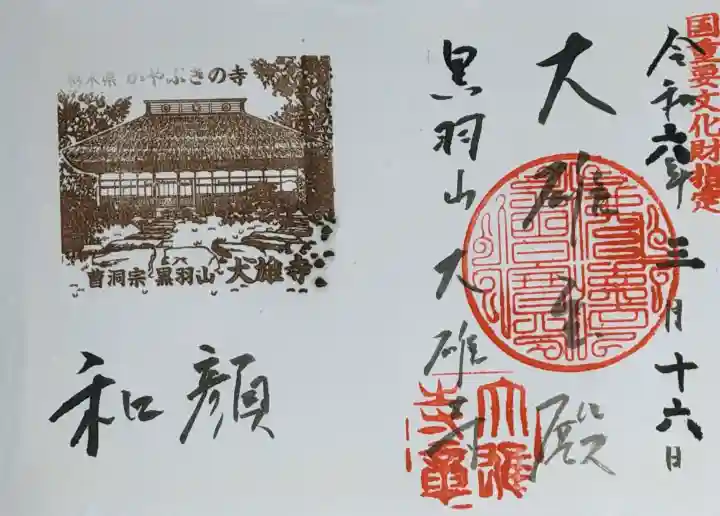 国重要文化財指定
令和六年三月十六日
大雄宝殿
黒羽山大雄寺
栃木県 かやぶきの寺
曹洞宗 黒羽山 大雄寺
和顔
大雄寺